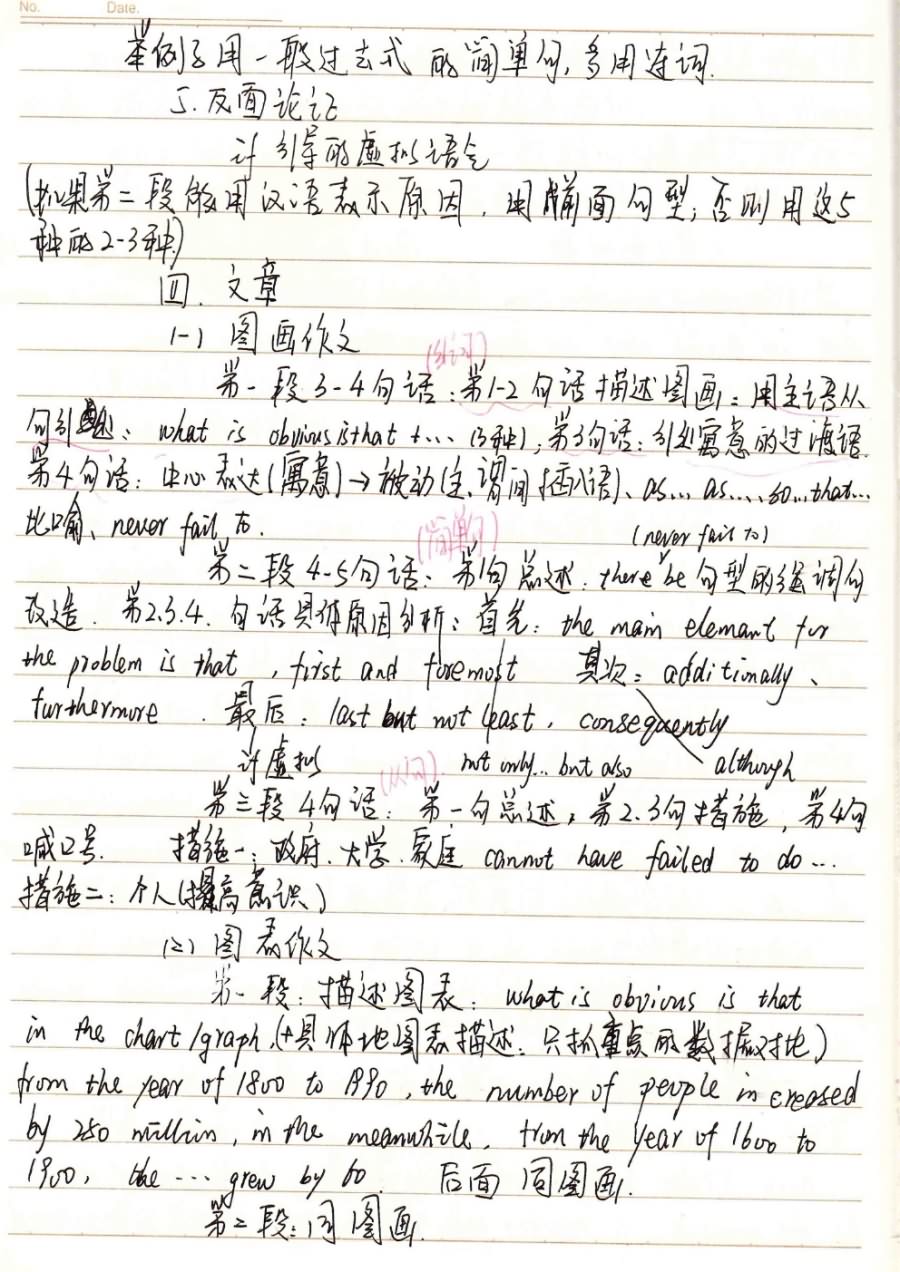 No. Date.
举例子用一般过去式的简单句,多用连词.
5.反面论证
if 引导的虚拟语气
(如果第二段能用汉语表示原因,用前面句型;否则用这5
种的2-3种)
四.文章
(一)图画作文
第一段3-4句话:第1-2句话描述图画:用主语从
句引出:what is obvious is that +... (3种),第3句话:引出寓意的过渡语.
第4句话:中心表达(寓意)→被动(主、谓间插入语)、as...as...、so...that...
比喻、never fail to. (never fail to)
(简单句)
第二段4-5句话:第1句总述:there be句型的强调句
改造.第2.3.4.句话具体原因分析:首先:the main elemant for
the problem is that ,first and foremost 其次:additionally、
furthermore .最后:last but not least, consequently
if虚拟 not only...but also although
第三段4句话:第一句总述,第2.3句措施,第4句
喊口号. 措施一:政府.大学.家庭 cannot have failed to do...
措施二:个人(提高意识)
(二)图表作文
第一段:描述图表:what is obvious is that
in the chart/graph.(+具体地图表描述:只抓重点的数据对比)
from the year of 1800 to 1990, the number of people increased
by 250 million, in the meanwhile, from the year of 1600 to
1900, the ... grew by 60. 后面同图画.
第二段:同图画.